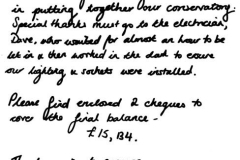 in putting together our conservatory.
Special thanks must go to the electrician,
Dave, who waited for almost an hour to be
let in & then worked in the dark to ensure
our lighting & sockets were installed.
Please find enclosed 2 cheques to
cover the final balance -
£15,134.